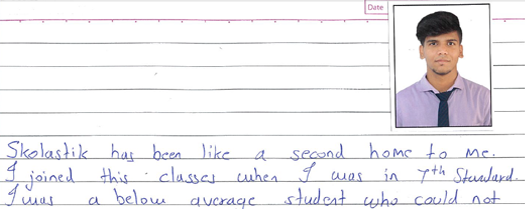 Date
Skolastik has been like a second home to me.
I joined this classes when I was in 7th Standard.
I was a below average student who could not